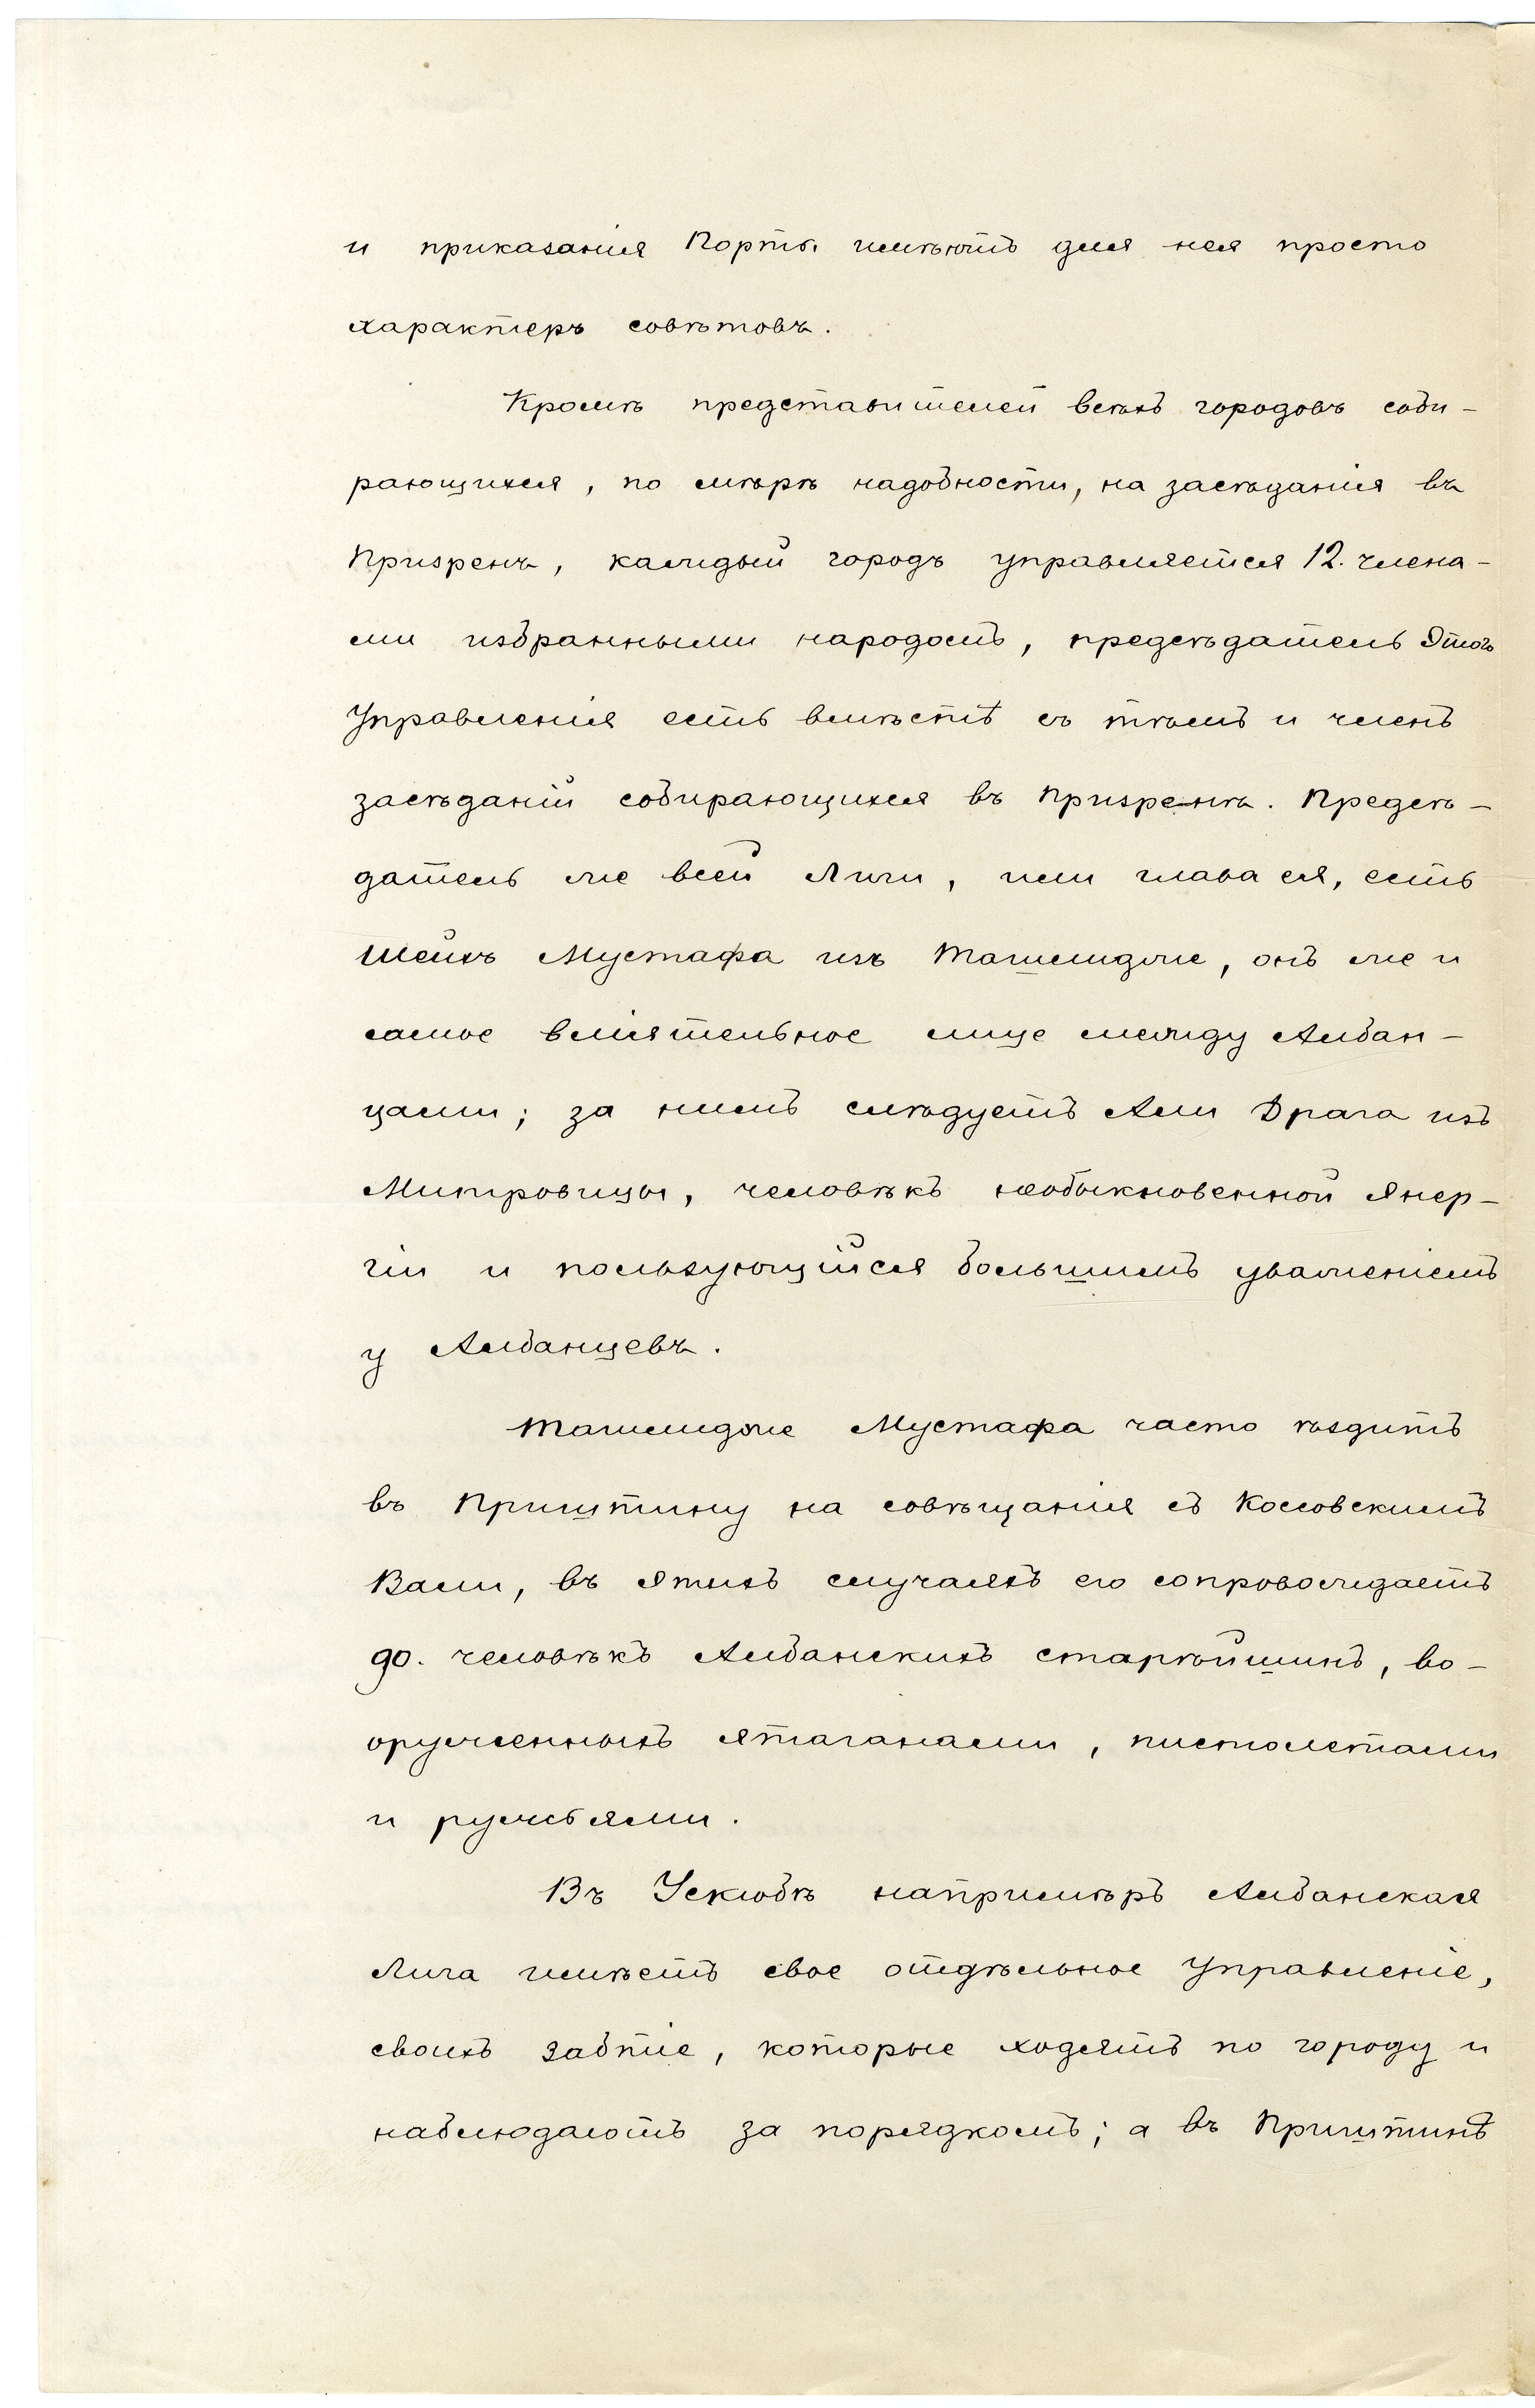 и приказанія Порты имѣютъ для нея просто
характеръ совѣтовъ.
Кромѣ представителей всѣхъ городовъ соби-
рающихся, по мѣрѣ надобности, на засѣданія въ
Призренъ, каждый городъ управляется 12. члена-
ми избранными народомъ, предсѣдатель этого
Управленія есть вмѣстѣ съ тѣмъ и членъ
засѣданій собирающихся въ Призренѣ. Предсѣ-
датель же всей Лиги, или глава ея, есть
Шейхъ Мустафа изъ Ташлидже, онъ же и
самое вліятельное лице между Албан-
цами; за нимъ слѣдуетъ Али Драга изъ
Митровицы, человѣкъ необыкновенной энер-
гіи и пользующійся большимъ уваженіемъ
у Албанцевъ.
Ташлидже Мустафа часто ѣздитъ
въ Приштину на совѣщанія съ Коссовскимъ
Вали, въ этихъ случаяхъ его сопровождаетъ
90. человѣкъ Албанскихъ старѣйшинъ, во-
оруженныхъ ятаганами, пистолетами
и ружьями.
Въ Ускюбѣ напримѣръ Албанская
Лига имѣетъ свое отдѣльное Управленіе,
своихъ Забтіе, которые ходятъ по городу и
наблюдаютъ за порядкомъ; а въ Приштинѣ